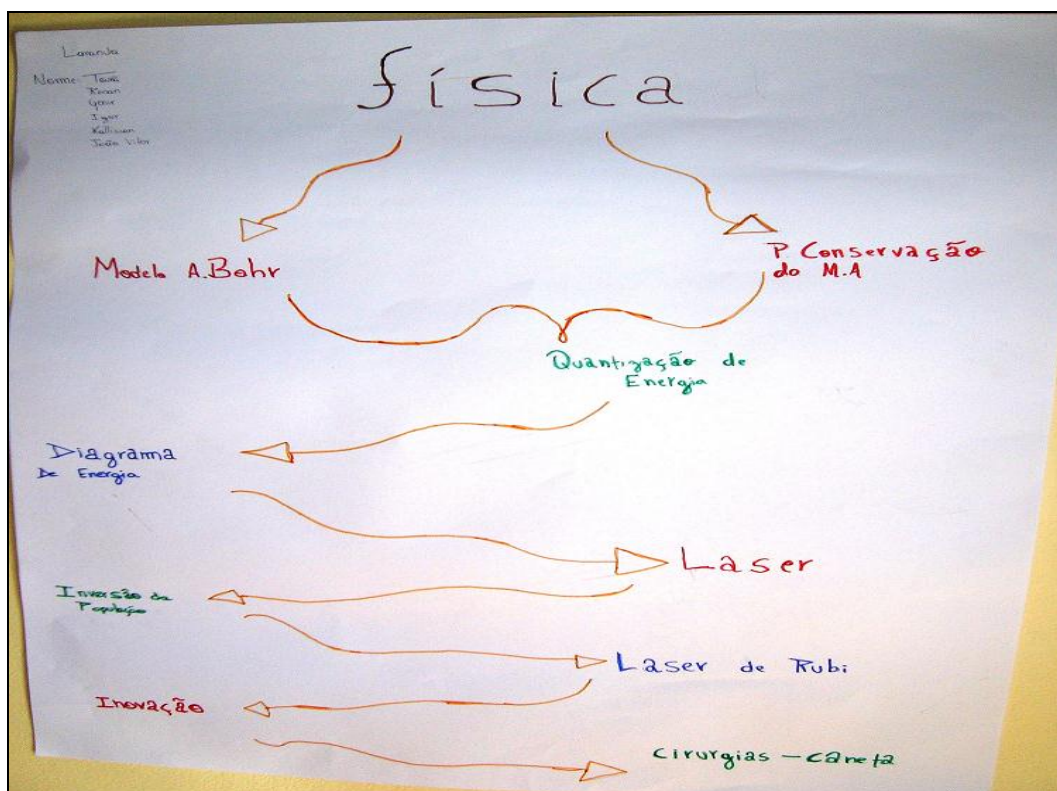 Nome:
Igor
João Vitor
física
Modelo A.Bohr
P Conservação
do M.A
Quantização de
Energia
Diagrama
De Energia
Laser
Inversão da
População
Laser de Rubi
Inovação
Cirurgias - caneta